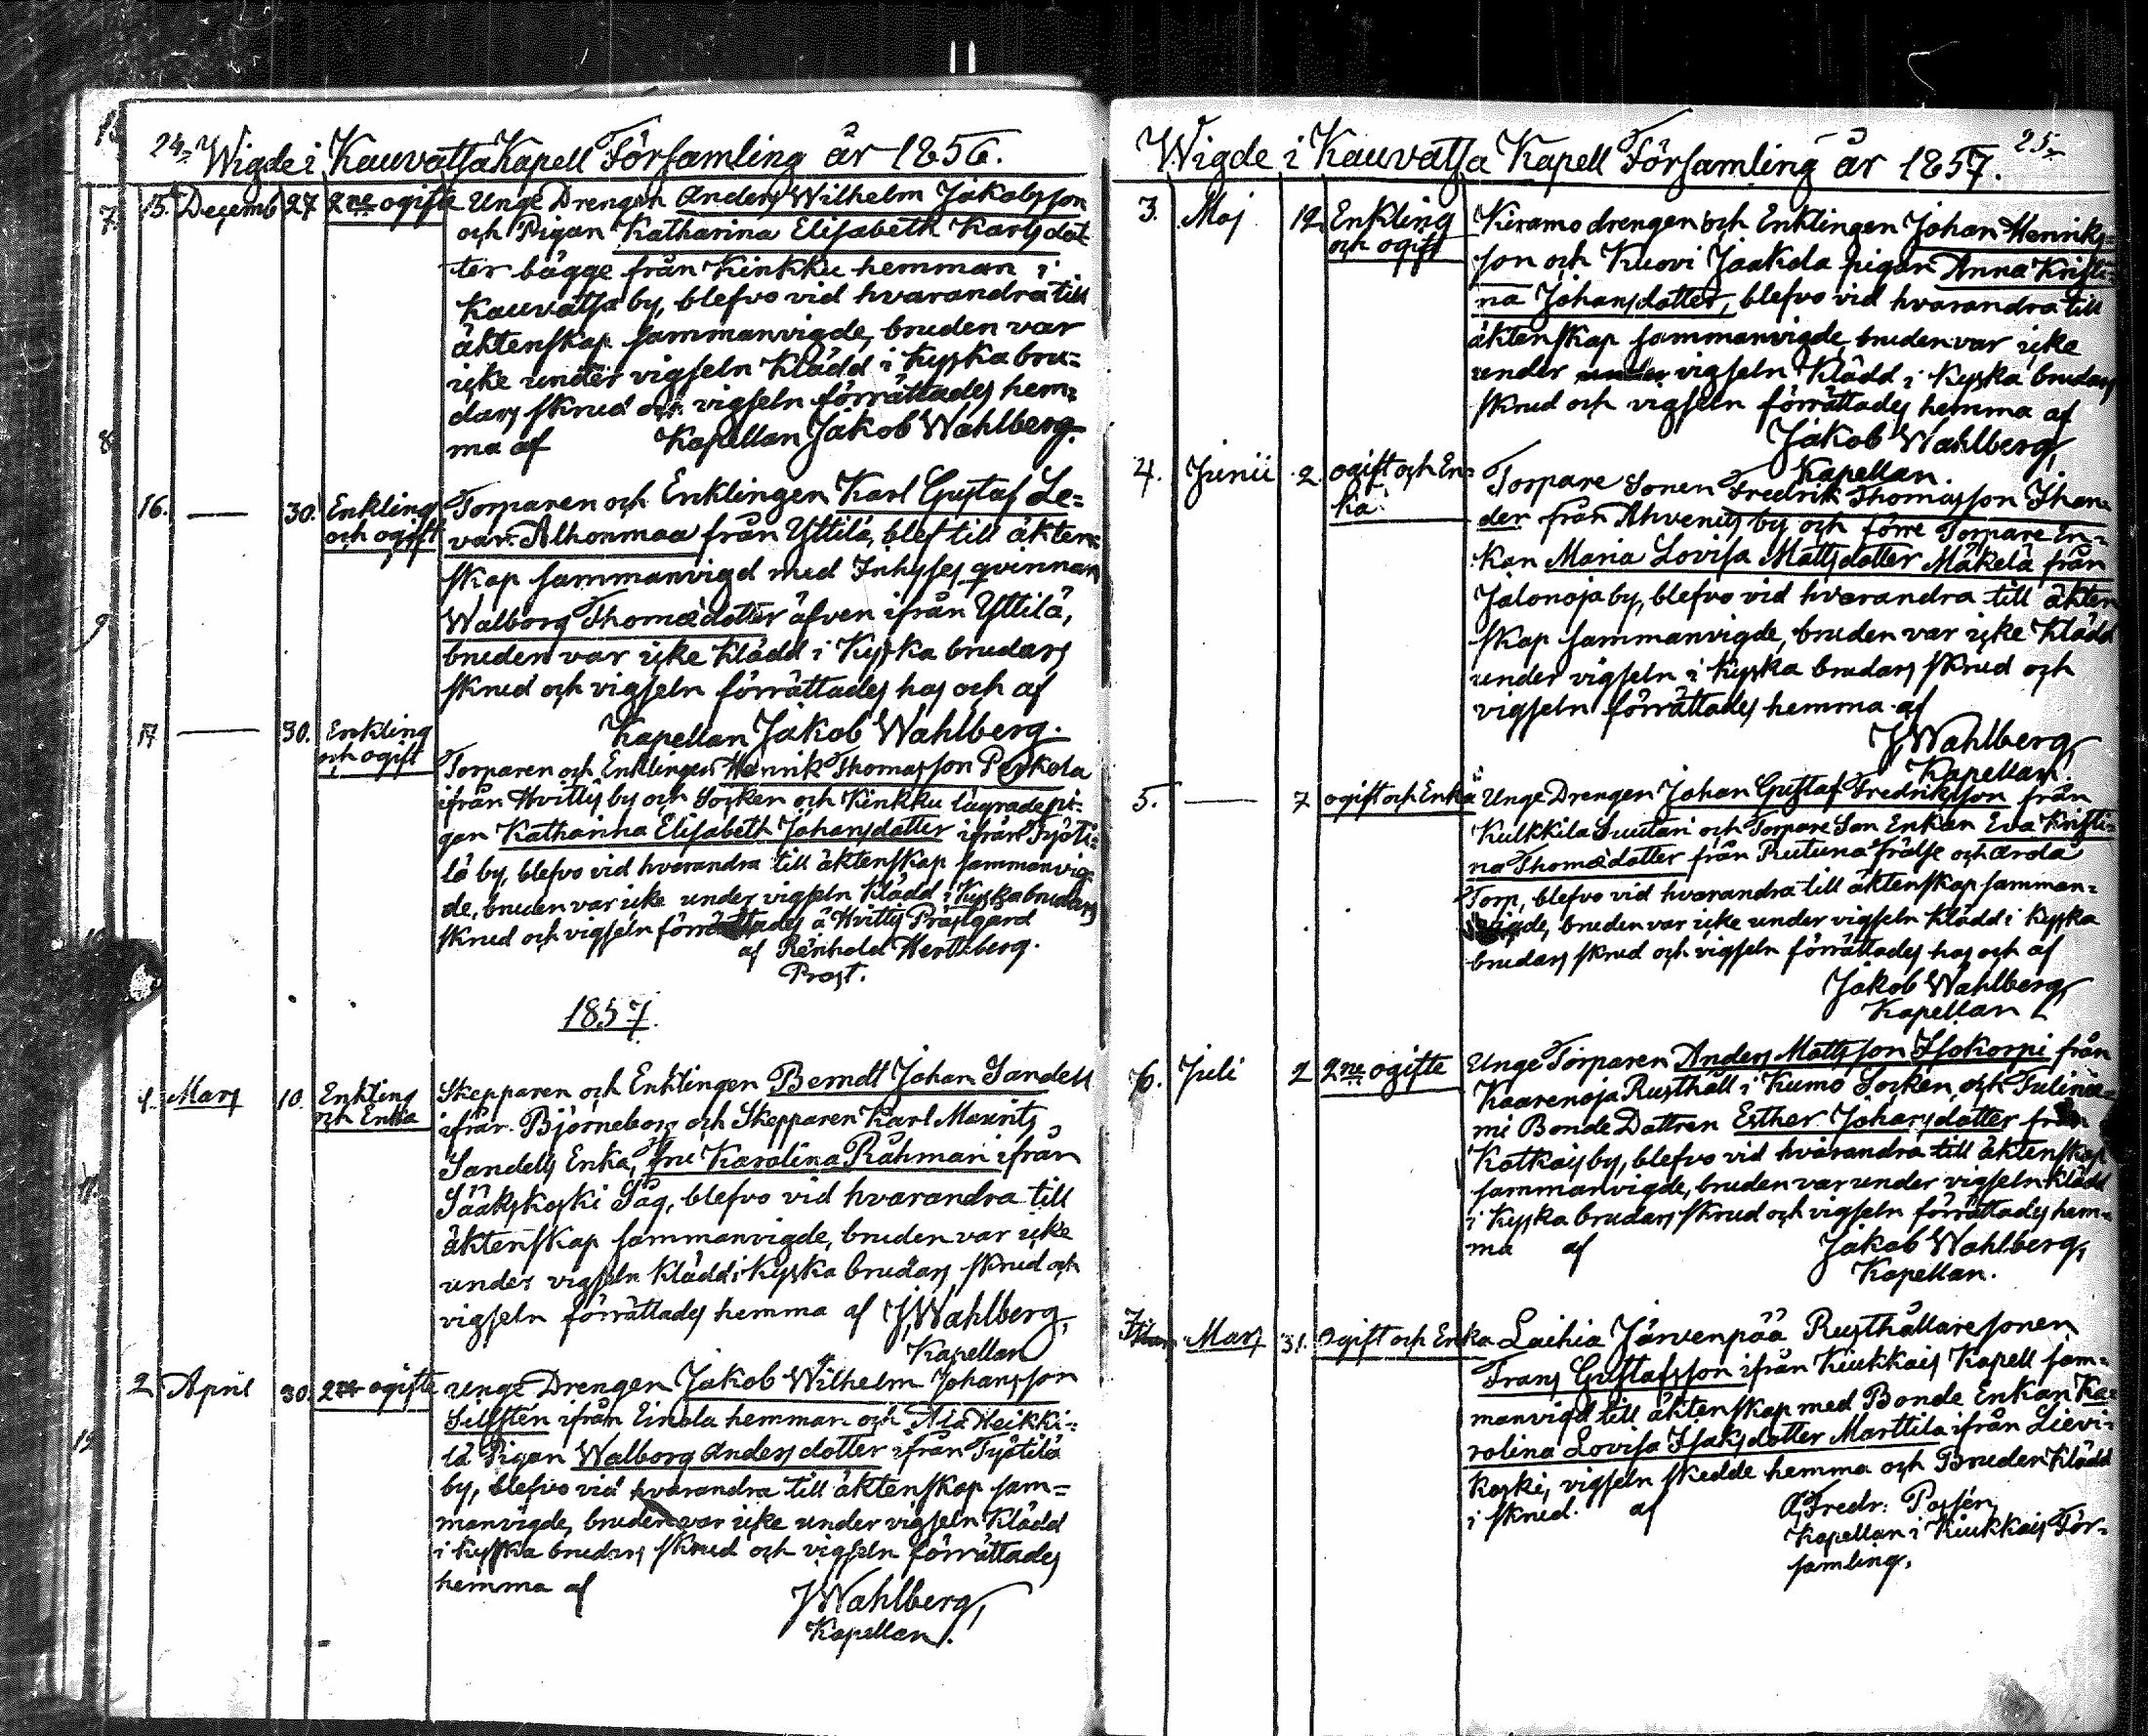 24. Wigde i Kauvatsa Kapell Församling år 1856.
15. Decemb 27 2ne ogifte Unge Drengen Anders Wilhelm Jakobsson
och Pigan Katharina Elisabeth Karlsdot-
ter bägge från Kinkku hemman i
Kauvatsa by, blefvo vid hvarandra till
äktenskap sammanvigde, bruden var
icke under vigseln klädd i kyska bru=
dars skrud och vigseln förrättades hem=
ma af Kapellan Jakob Wahlberg.
16. — 30. Enkling Torparen och Enklingen Karl Gustaf Le=
och ogift van Alhonmaa från Yttilä, blef till äkten=
skap sammanvigd med Inhyses qvinnan
Walborg Thomædotter äfven ifrån Yttilä,
bruden var icke klädd i kyska brudars
skrud och vigseln förrättades hos och af
Kapellan Jakob Wahlberg.
17 — 30. Enkling
och ogift Torparen och Enklingen Henrik Thomasson Penkola
ifrån Hvittis by och Socken och Kinkku lägrade pi-
gan Katharina Elisabeth Johansdotter ifrån Pyöti=
lä by, blefvo vid hvarandra till äktenskap sammanvig-
de, bruden var icke under vigseln klädd i kyska brudars
skrud och vigseln förrättades å Hvittis Prästgård
af Reinhold Hertzberg.
Prost.
1857.
1. Mars 10. Enkling Skepparen och Enklingen Berndt Johan Sandell
och Enka ifrån Björneborg och Skepparen Karl Maurits
Sandells Enka, fru Karolina Råhman ifrån
Sääkskoski Såg, blefvo vid hvarandra till
äktenskap sammanvigde, bruden var icke
under vigseln klädd i kyska brudars skrud och
vigseln förrättades hemma af J. Wahlberg,
Kapellan
2. April 30. 2ne ogifte Unge Drengen Jakob Wilhelm Johansson
Sillsten ifrån Einola hemman och Ala Heikki-
lä Pigan Walborg Andersdotter ifrån Pyötilä
by, blefvo vid hvarandra till äktenskap sam=
manvigde, bruden var icke under vigseln klädd
i kyska brudars skrud och vigseln förrättades
hemma af J Wahlberg,
Kapellan.
Wigde i Kauvatsa Kapell Församling år 1857. 25.
3. Maj 12. Enkling Keramo drengen och Enklingen Johan Henriks-
och ogift son och Kuovi Jaakola pigan Anna Kristi-
na Johansdotter, blefvo vid hvarandra till
äktenskap sammanvigde, bruden var icke
under under vigseln klädd i kyska brudars
skrud och vigseln förrättades hemma af
Jakob Wahlberg,
Kapellan.
4. Junii 2. ogift och En= Torpare Sonen Fredrik Thomasson Than-
ka. der från Ahvenus by och förre Torpare En=
kan Maria Lovisa Mattsdotter Mäkelä från
Jalonoja by, blefvo vid hvarandra till äkten
skap sammanvigde, bruden var icke klädd
under vigseln i kyska brudars skrud och
vigseln förrättades hemma af
J. Wahlberg,
Kapellan.
5. — 7 ogift och Enka Unge Drengen Johan Gustaf Fredriksson från
Kulkkila Suutari och Torpare Son Enkan Eva Kristi=
na Thomædotter från Putuna frälse och Arola
Torp, blefvo vid hvarandra till äktenskap samman=
vigde, bruden var icke under vigseln klädd i kyska
brudars skrud och vigseln förrättades hos och af
Jakob Wahlberg,
Kapellan
6. Juli 2 2ne ogifte Unge Torparen Anders Mattsson Isokorpi från
Kaarenoja Rusthåll i Kumo Socken, och Tulinie=
mi Bonde Dottren Esther Johansdotter från
Katkais by, blefvo vid hvarandra till äktenskap
sammanvigde, bruden var under vigseln klädd
i kyska brudars skrud och vigseln förrättades hem-
ma af Jakob Wahlberg,
Kapellan.
7. Mars 31. Ogift och Enka Laihia Järvenpää Rusthållaresonen
Frans Gustafsson ifrån Kiukkais Kapell sam=
manvigd till äktenskap med Bonde Enkan Ka-
rolina Lovisa Isaksdotter Marttila ifrån Lievi-
koski, vigseln skedde hemma och Bruden klädd
i skrud. af A. Fredr. Passén,
Kapellan i Kiukkais För-
samling.